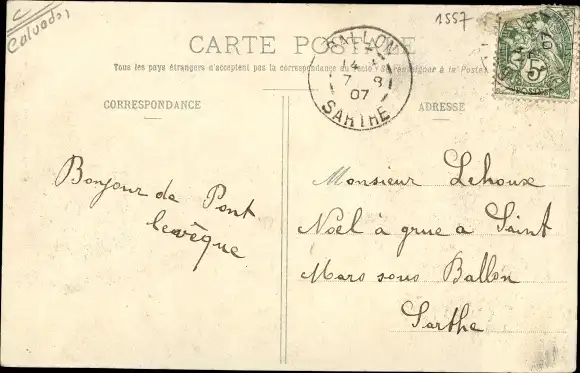 Calvados
1557
CARTE POSTALE
Tous les pays étrangers n'acceptent pas la correspondance au recto (Se renseigner à la Poste)
BALLON
14
7 8
07
SARTHE
5
07
5c
POSTES
CORRESPONDANCE
ADRESSE
Bonjour de Pont
levêque
Monsieur Lehoux
Noël à grue à Saint
Mars sous Ballon
Sarthe